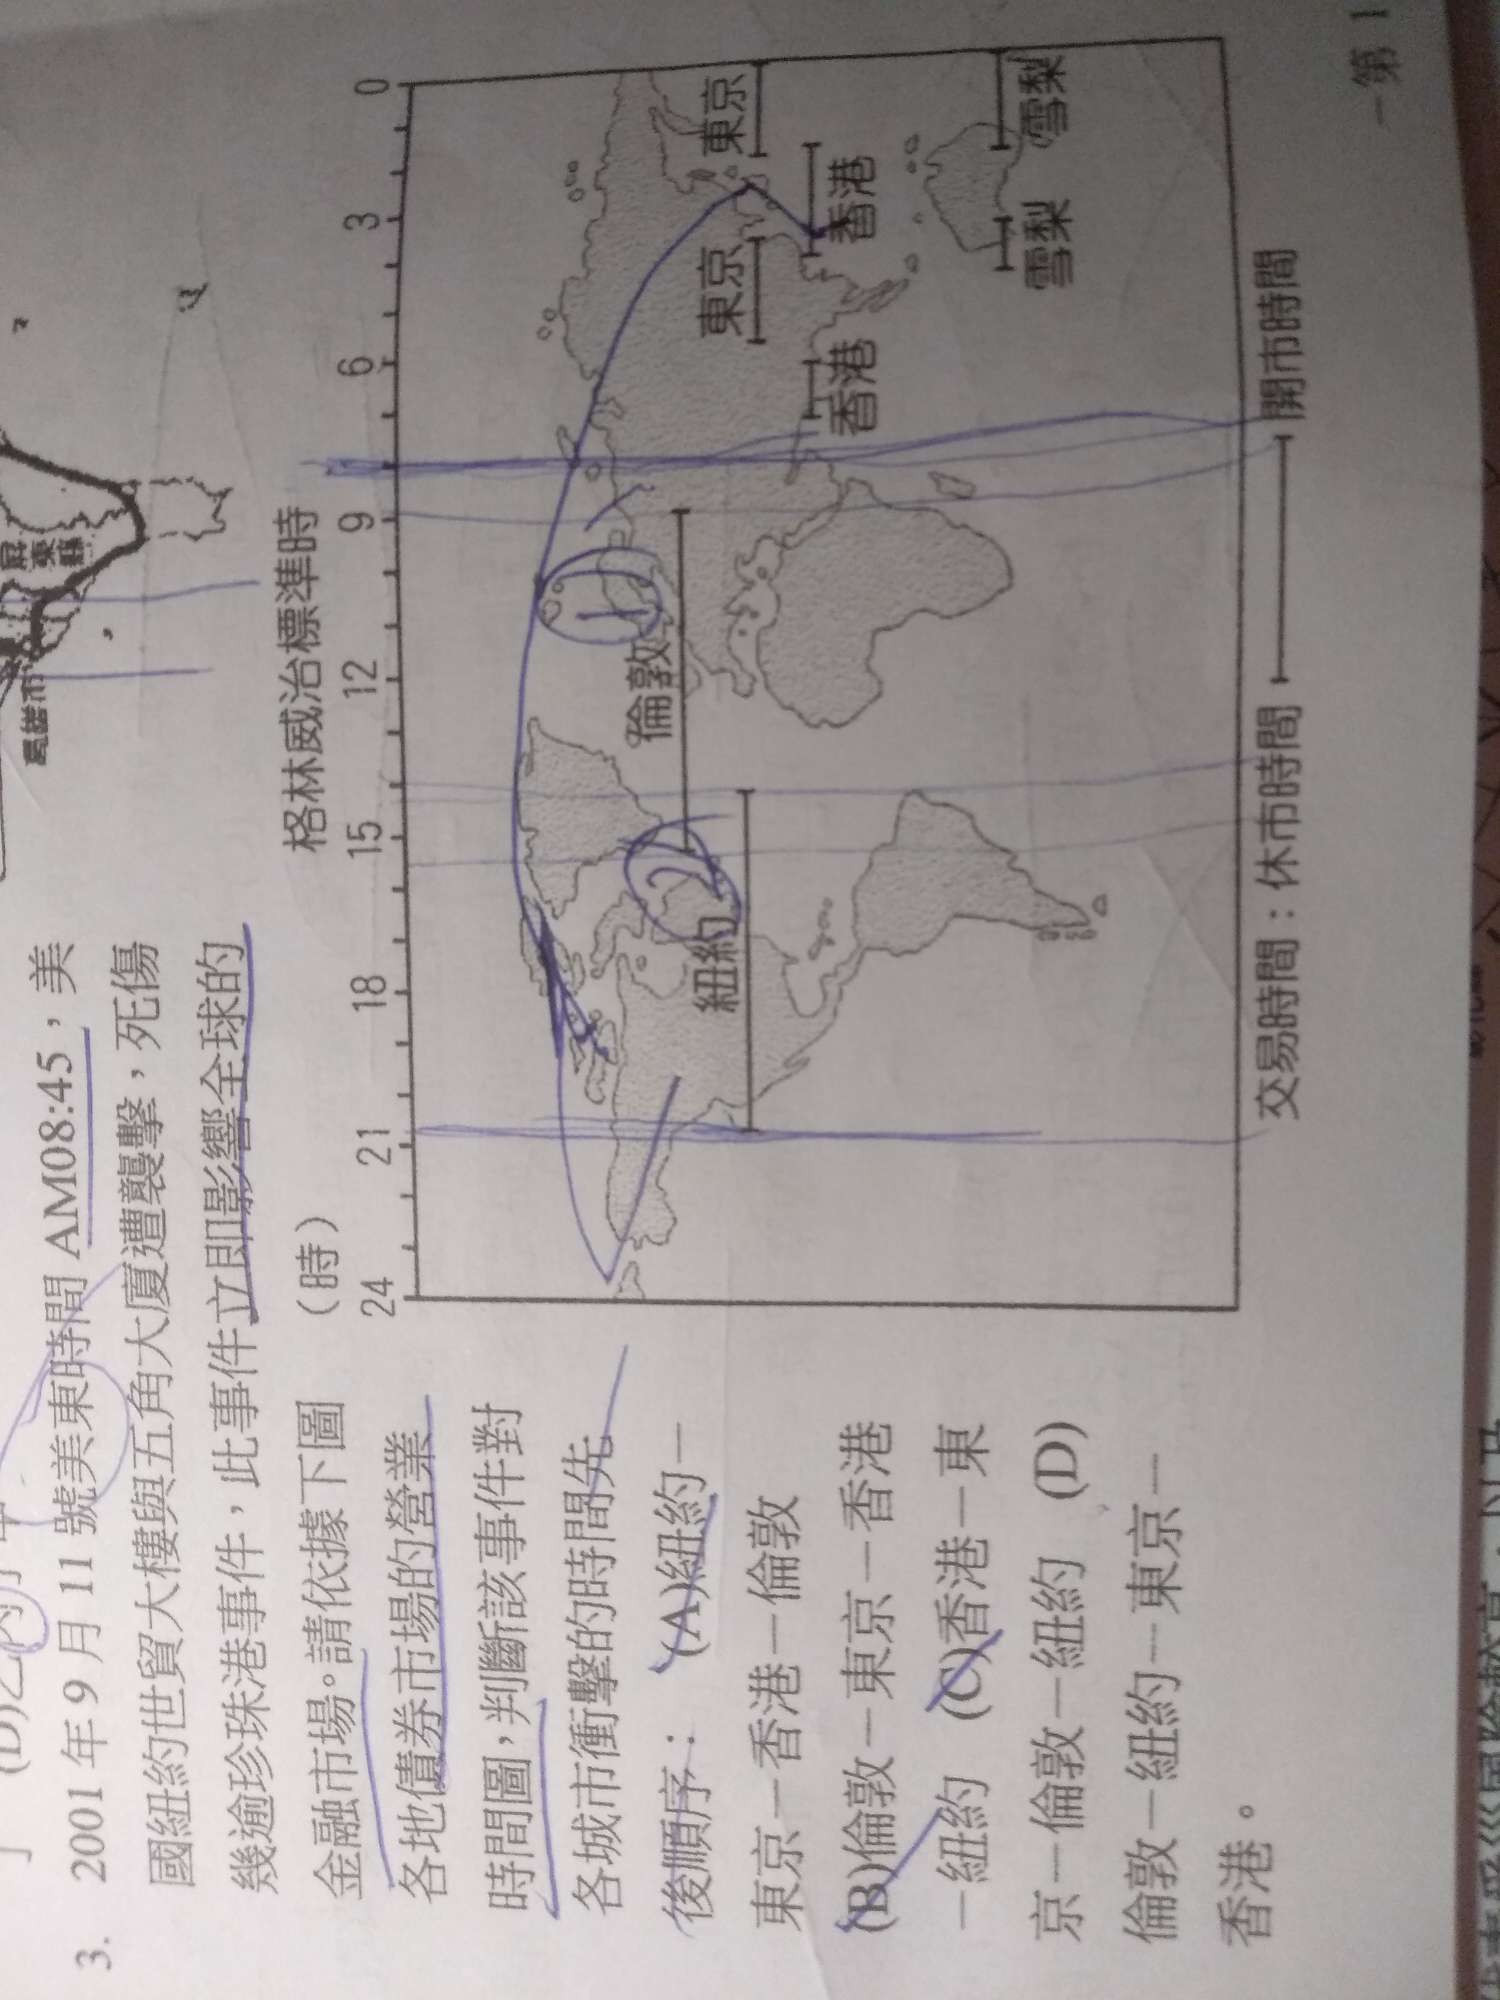 高雄市
屏東縣
3. 2001 年 9 月 11 號美東時間 AM08:45，美
國紐約世貿大樓與五角大廈遭襲擊，死傷
幾逾珍珠港事件，此事件立即影響全球的
金融市場。請依據下圖
各地債券市場的營業
時間圖，判斷該事件對
各城市衝擊的時間先
後順序： (A)紐約－
東京－香港－倫敦
(B)倫敦－東京－香港
－紐約 (C)香港－東
京－倫敦－紐約 (D)
倫敦－紐約－東京－
香港。
(時) 格林威治標準時
24 21 18 15 12 9 6 3 0
紐約
倫敦
東京
東京
香港
香港
雪梨
雪梨
交易時間：休市時間 開市時間
－第 1